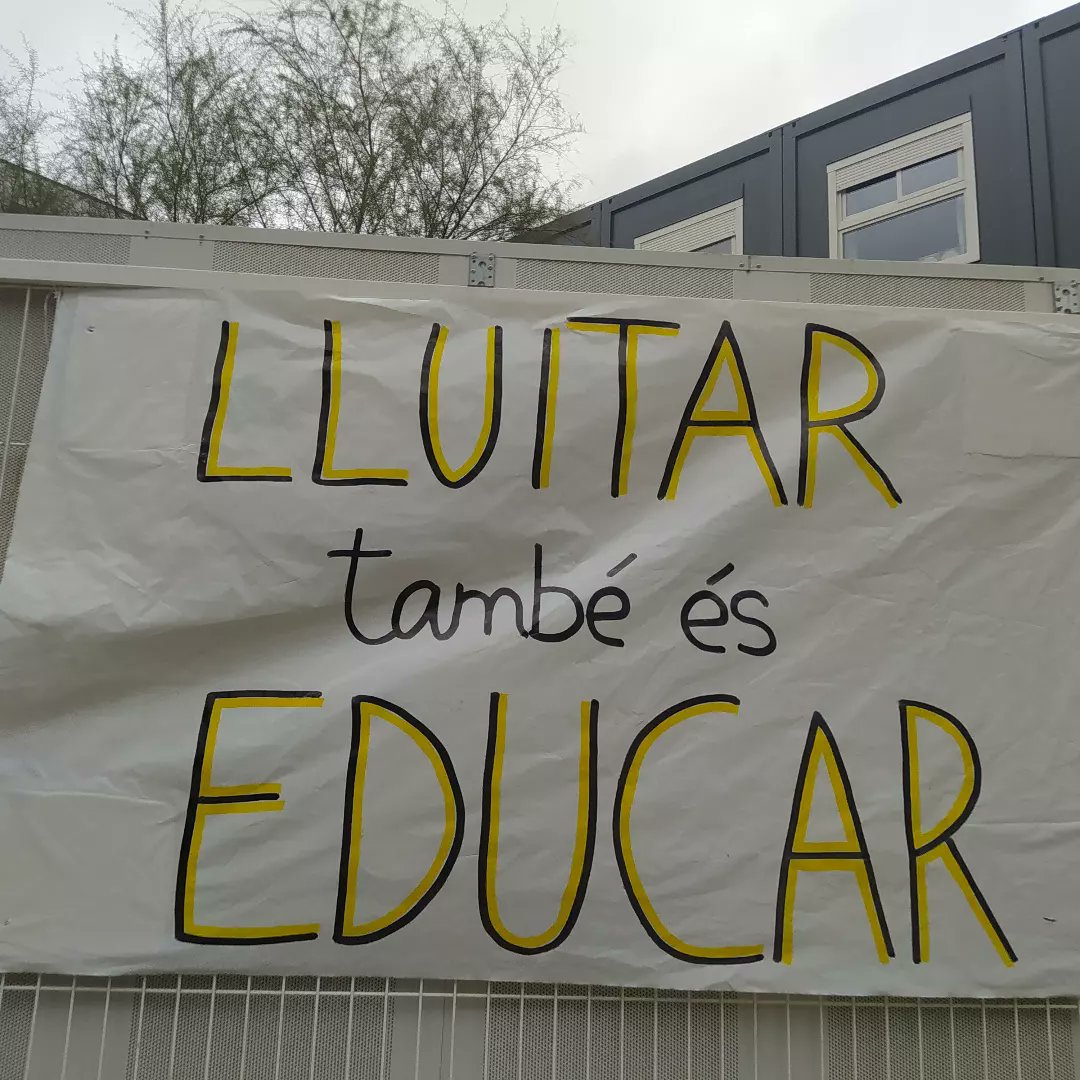 LLUITAR
també és
EDUCAR